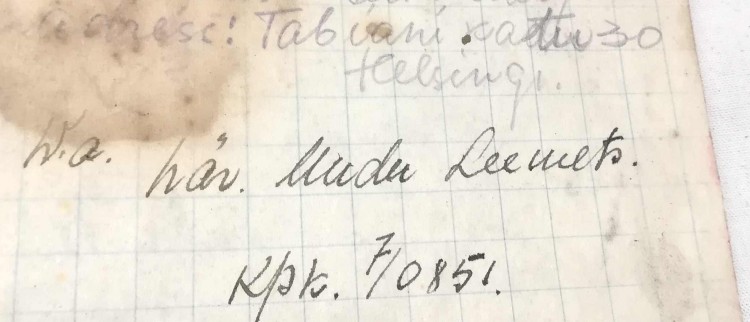 adresc: Tabiani katu 30
Helsingi.
W.a. här. Uudu Leemets.
Kpk. 7/0851.